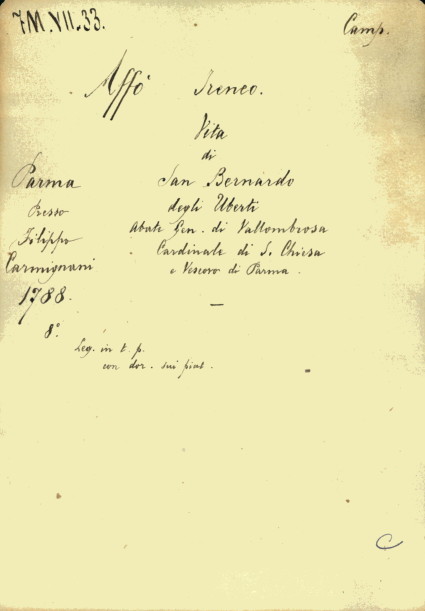 7M.VII.33. Camp.
Affò Ireneo.
Vita
di
San Bernardo
degli Uberti
Abate Gen. di Vallombrosa
Cardinale di S. Chiesa
e Vescovo di Parma.
Parma
Presso
Filippo
Carmignani
1788.
8°.
Leg. in t. p.
con dor. sui piat.
C